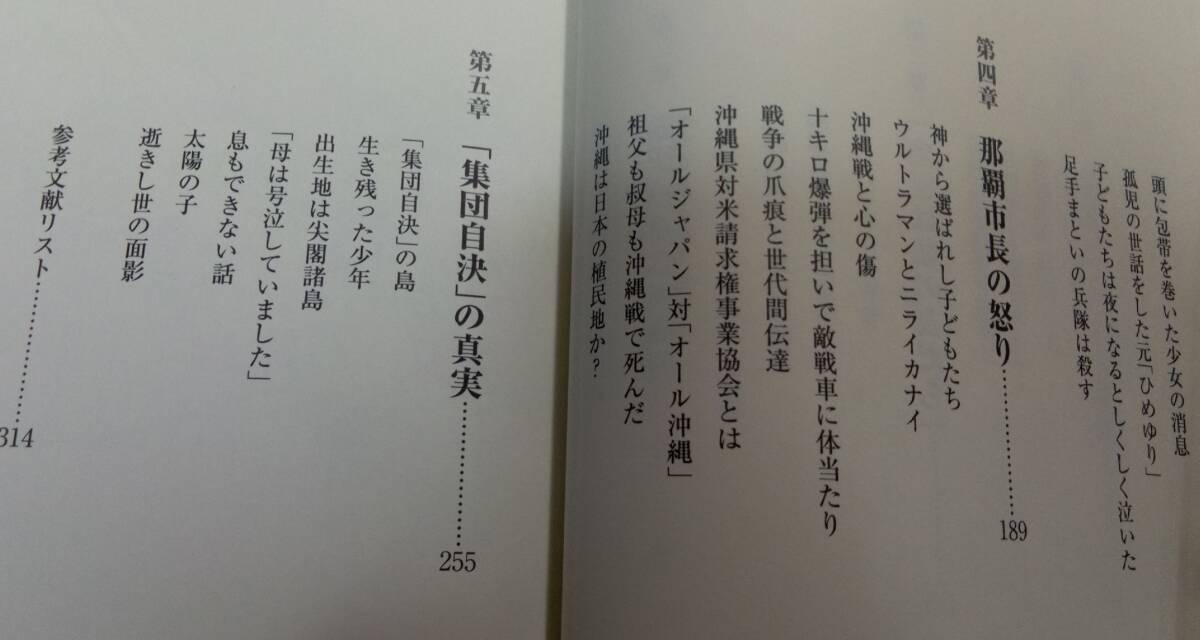 頭に包帯を巻いた少女の消息
孤児の世話をした元「ひめゆり」
子どもたちは夜になるとしくしく泣いた
足手まといの兵隊は殺す
第四章 那覇市長の怒り………………189
神から選ばれし子どもたち
ウルトラマンとニライカナイ
沖縄戦と心の傷
十キロ爆弾を担いで敵戦車に体当たり
戦争の爪痕と世代間伝達
沖縄県対米請求権事業協会とは
「オールジャパン」対「オール沖縄」
祖父も叔母も沖縄戦で死んだ
沖縄は日本の植民地か？
第五章 「集団自決」の真実………………255
「集団自決」の島
生き残った少年
出生地は尖閣諸島
「母は号泣していました」
息もできない話
太陽の子
逝きし世の面影
参考文献リスト………………314